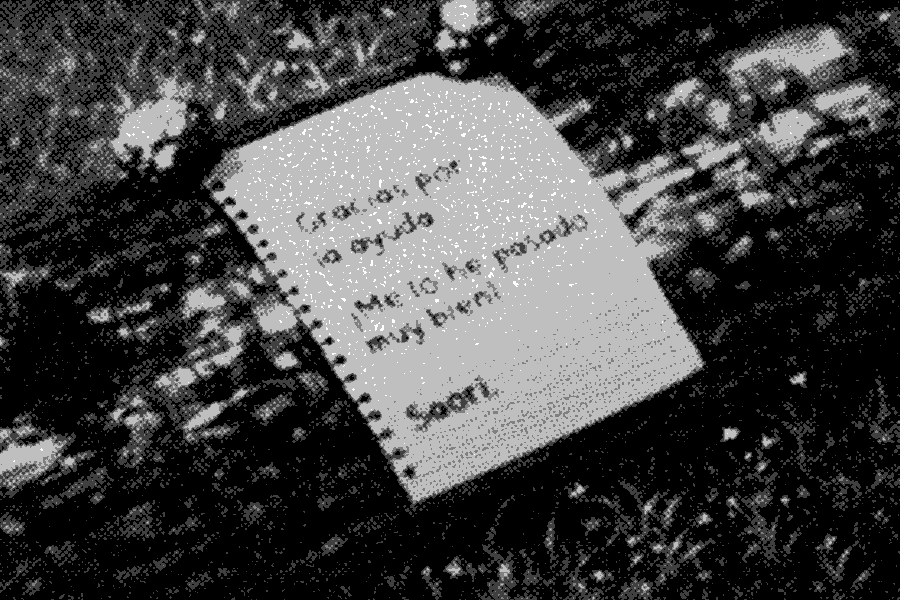 Gracias por
la ayuda
¡Me lo he pasado
muy bien!
Saori.